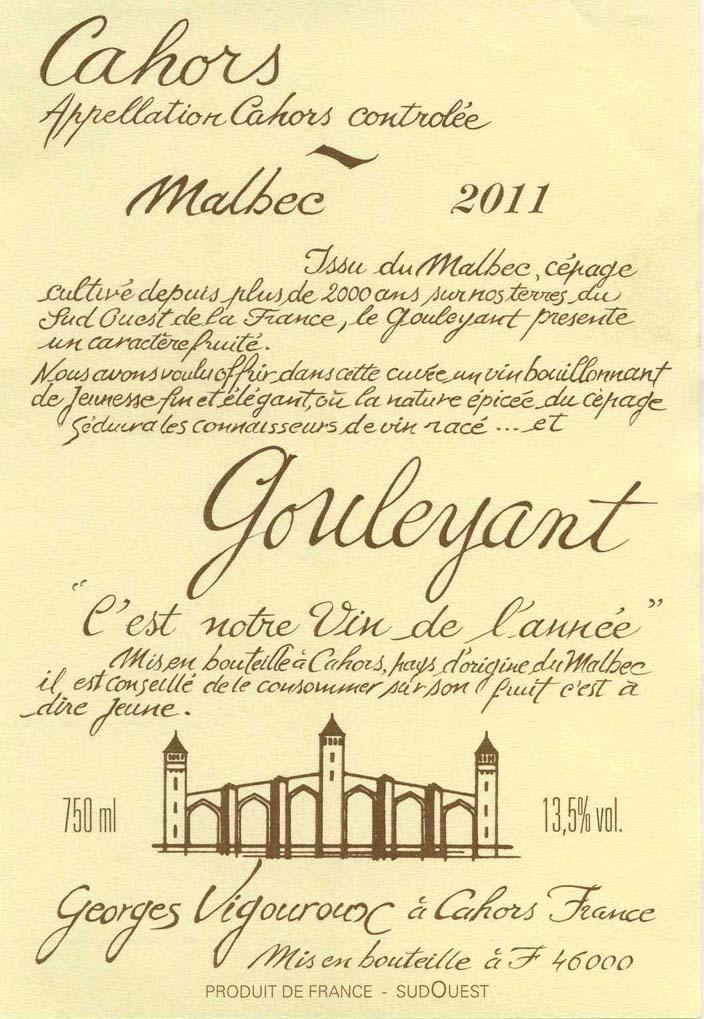 Cahors
Appellation Cahors controlée
Malbec 2011
Issu du Malbec, cépage
cultivé depuis plus de 2000 ans sur nos terres du
Sud Ouest de la France, le Gouleyant présente
un caractère fruité.
Nous avons voulu offrir dans cette cuvée un vin bouillonnant
de Jeunesse fin et élégant, où la nature épicée du cépage
Séduira les connaisseurs de vin racé ... et
Gouleyant
"C'est notre Vin de l'année"
Mis en bouteille à Cahors, pays d'origine du Malbec
il est conseillé de le consommer sur son fruit c'est à
dire Jeune.
750 ml 13,5% vol.
Georges Vigouroux à Cahors France
Mis en bouteille à F 46000
PRODUIT DE FRANCE - SUDOUEST